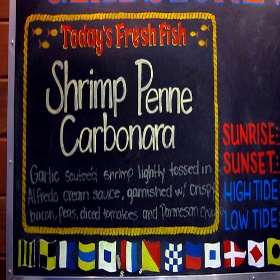 Today's Fresh Fish
Shrimp Penne
Carbonara
Garlic sauteed shrimp lightly tossed in
Alfredo cream sauce, garnished w/ crispy
bacon, peas, diced tomatoes and Parmesan
SUNRISE:
SUNSET:
HIGH TIDE
LOW TIDE